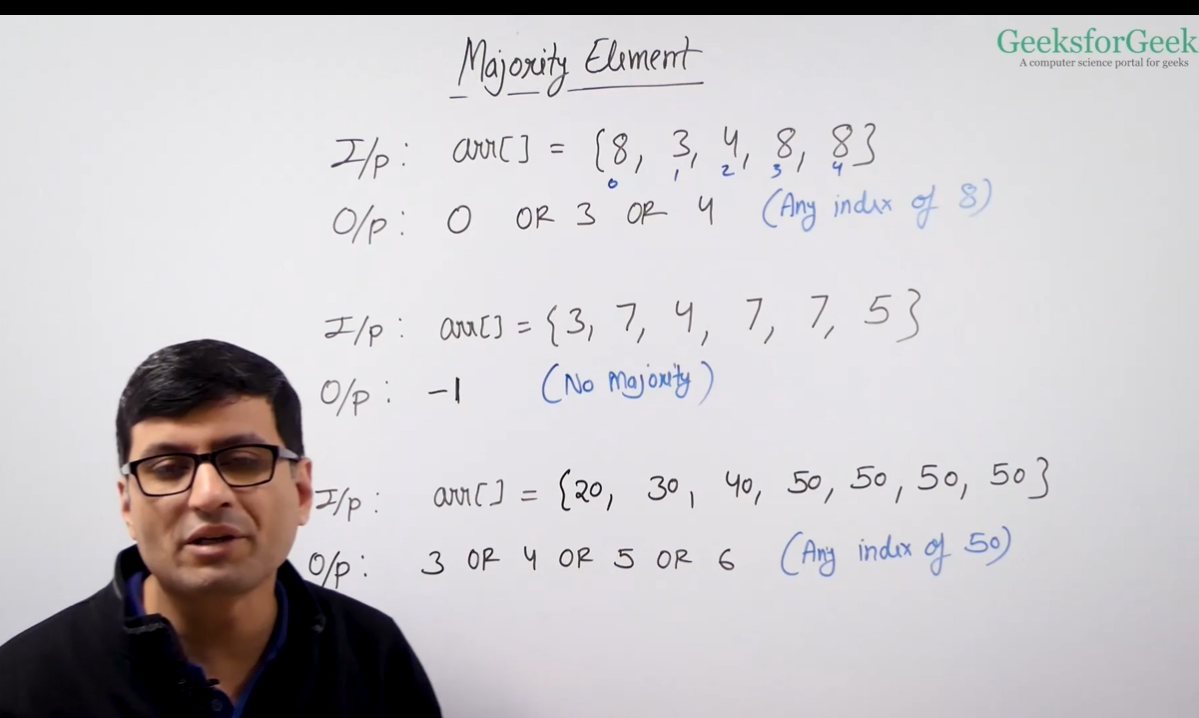 GeeksforGeek
A computer science portal for geeks
Majority Element
I/p: arr[] = {8, 3, 4, 8, 8}
0 1 2 3 4
O/p: 0 OR 3 OR 4 (Any index of 8)
I/p: arr[] = {3, 7, 4, 7, 7, 5}
O/p: -1 (No Majority)
I/p: arr[] = {20, 30, 40, 50, 50, 50, 50}
O/p: 3 OR 4 OR 5 OR 6 (Any index of 50)